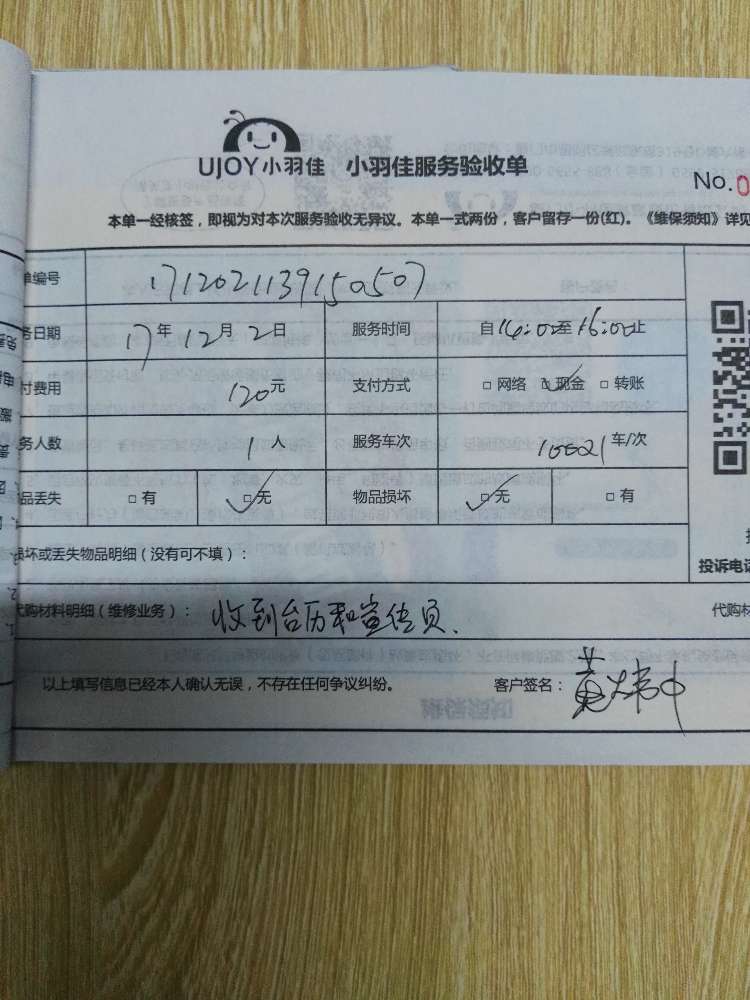 UJOY小羽佳 小羽佳服务验收单
No.0
本单一经核签，即视为对本次服务验收无异议。本单一式两份，客户留存一份(红)。《维保须知》详见
单编号 171202113915050507
务日期 17年12月2日 服务时间 自14:00至16:00止
付费用 120元 支付方式 □网络 □现金 □转账
务人数 1人 服务车次 10021车/次
品丢失 □有 □无 物品损坏 □无 □有
损坏或丢失物品明细（没有可不填）：
投诉电话
代购材料明细（维修业务）： 收到台历和宣传页、 代购材
以上填写信息已经本人确认无误，不存在任何争议纠纷。 客户签名：